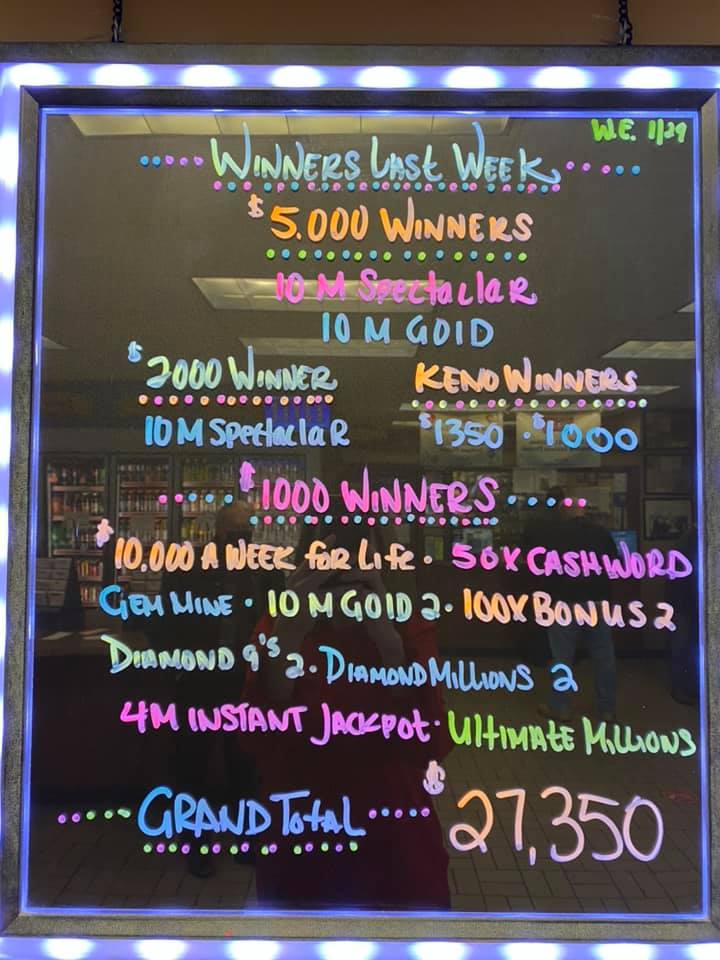 W.E. 1/29
WINNERS LAST WEEK
$5,000 WINNERS
10 M SpectaclaR
10 M GOlD
$2000 WINNER
10M SpectaclaR
KENO WINNERS
$1350 · $1000
$1000 WINNERS
$10,000 A WEEK for Life · 50X CASHWORD
GEM MINE · 10 M GOlD 2 · 100X BONUS 2
DIAMOND 9'S 2 · DIAMOND MILLIONS 2
4M INSTANT JACKPOT · UltIMAtE MILLIONS
GRAND TotAL $27,350